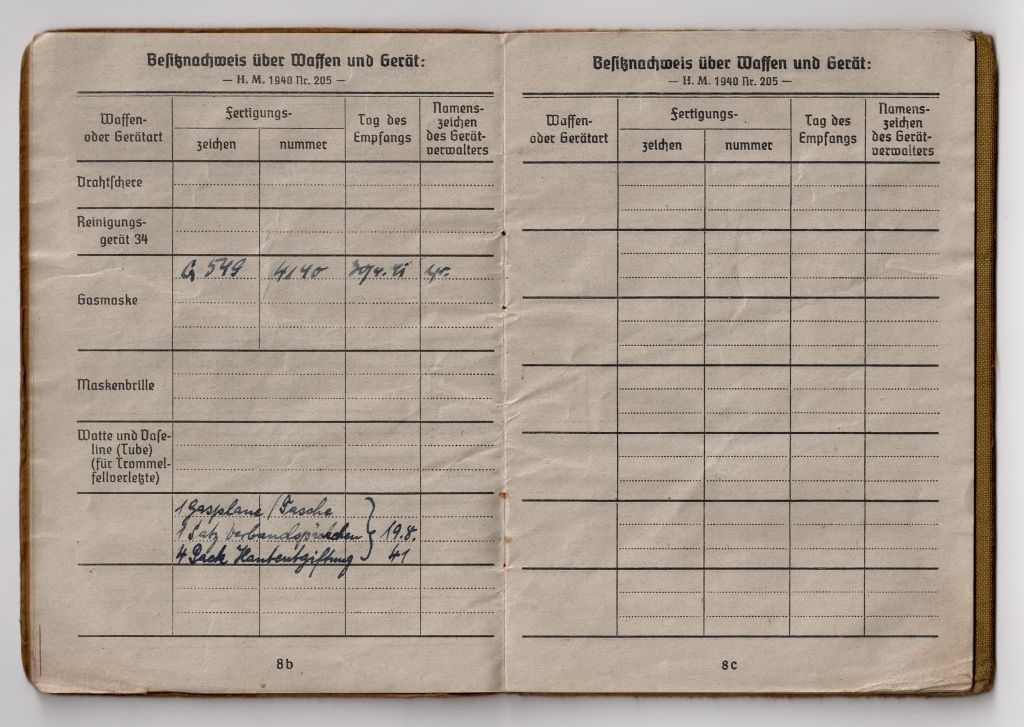 Besitznachweis über Waffen und Gerät:
— H. M. 1940 Nr. 205 —
Waffen-
oder Gerätart
Fertigungs-
zeichen
nummer
Tag des
Empfangs
Namens-
zeichen
des Gerät-
verwalters
Drahtschere
Reinigungs-
gerät 34
Gasmaske
G 549 4140
Maskenbrille
Watte und Vase-
line (Tube)
(für Trommel-
fellverletzte)
1 Gasplane / Tasche
1 Satz Verbandspäckchen 19.8.
4 Pack Hautentgiftung 41
8b
Besitznachweis über Waffen und Gerät:
— H. M. 1940 Nr. 205 —
Waffen-
oder Gerätart
Fertigungs-
zeichen
nummer
Tag des
Empfangs
Namens-
zeichen
des Gerät-
verwalters
8c